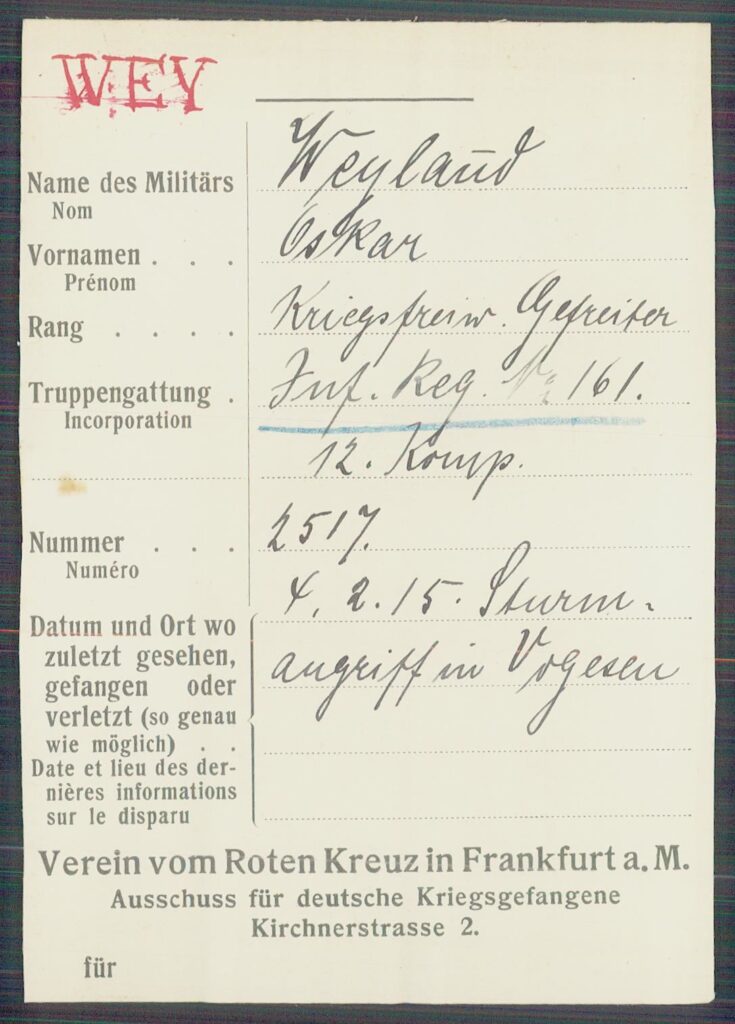 WEY
Name des Militärs Weyland
Nom
Vornamen . . . Oskar
Prénom
Rang . . . . Kriegsfreiw. Gefreiter
Truppengattung . Inf. Reg. No 161.
Incorporation
12. Komp.
Nummer . . . 2517.
Numéro
4. 2. 15. Sturm-
Datum und Ort wo
zuletzt gesehen, angriff in Vogesen
gefangen oder
verletzt (so genau
wie möglich) . .
Date et lieu des der-
nières informations
sur le disparu
Verein vom Roten Kreuz in Frankfurt a. M.
Ausschuss für deutsche Kriegsgefangene
Kirchnerstrasse 2.
für